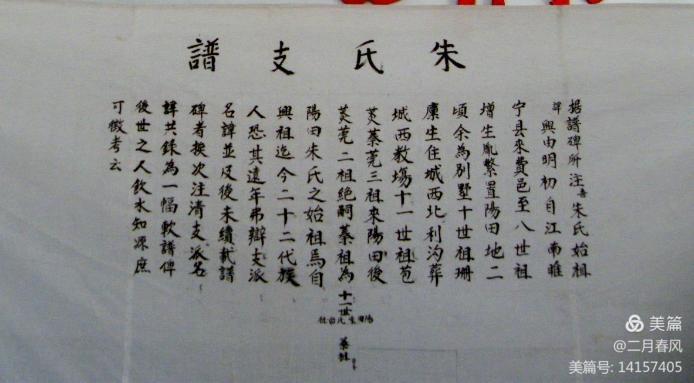 朱氏支譜
据譜碑所注吾朱氏始祖
諱興由明初自江南睢
宁县來費邑至八世祖
增生胤繁置陽田地二
頃余為別墅十世祖珊
康生住城西北利沟葬
城西教場十一世祖苞
芡蓁莞三祖來陽田後
芡莞二祖絶嗣蓁祖為
陽田朱氏之始祖焉自
興祖迄今二十二代族
人恐其遠年弗辯支派
名諱並及後未續載譜
碑者挨次注清支派名
諱共錄為一幅軟譜俾
後世之人飲水知源庶
可徵考云
十一世
陽田朱氏始祖
蓁祖
美篇
@二月春风
美篇号: 14157405